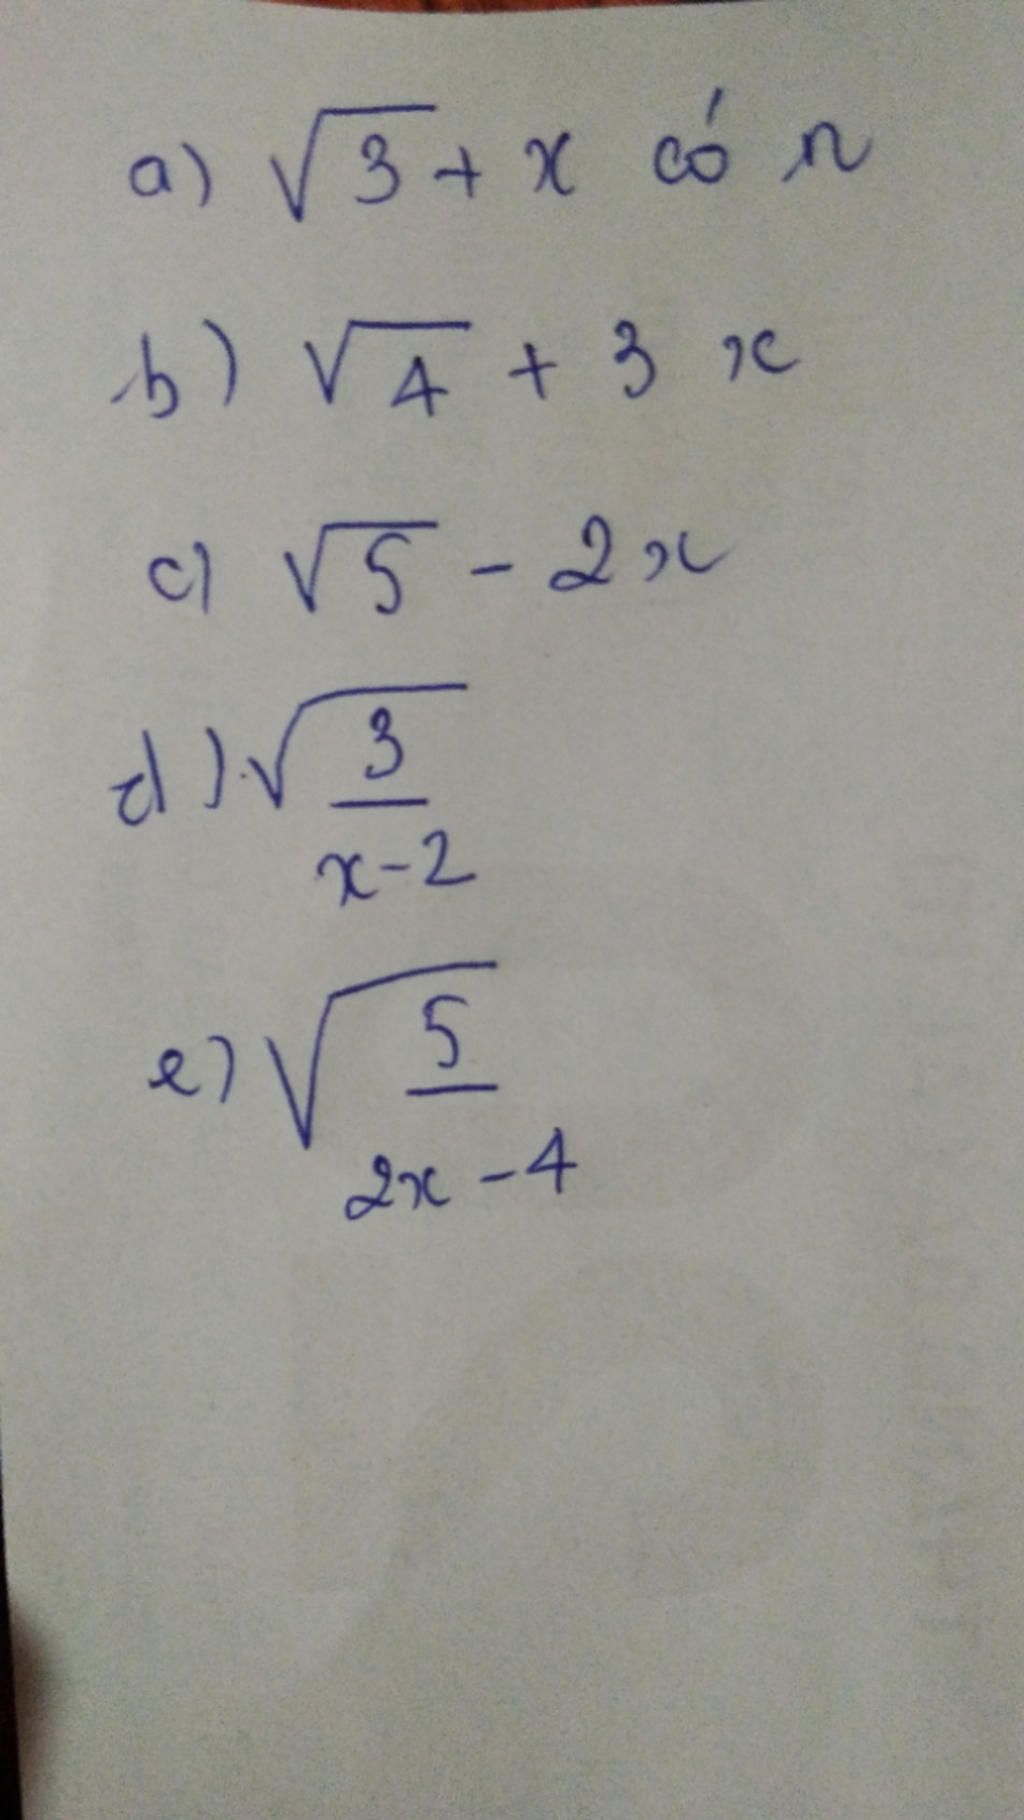 a) √3 + x có n
b) √4 + 3 x
c) √5 - 2x
d) √3/x-2
e) √5/2x-4